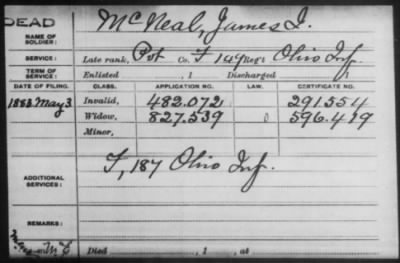 DEAD
McNeal, James I.
NAME OF SOLDIER:
SERVICE: Late rank, Pvt Co. F 149 Reg't Ohio Inf.
TERM OF SERVICE: Enlisted , 1 Discharged
DATE OF FILING. CLASS. APPLICATION NO. LAW. CERTIFICATE NO.
1883 May 3 Invalid, 482.072 291554
Widow, 827.539 596.419
Minor,
ADDITIONAL SERVICES: F, 187 Ohio Inf.
REMARKS:
Died , 1 , at